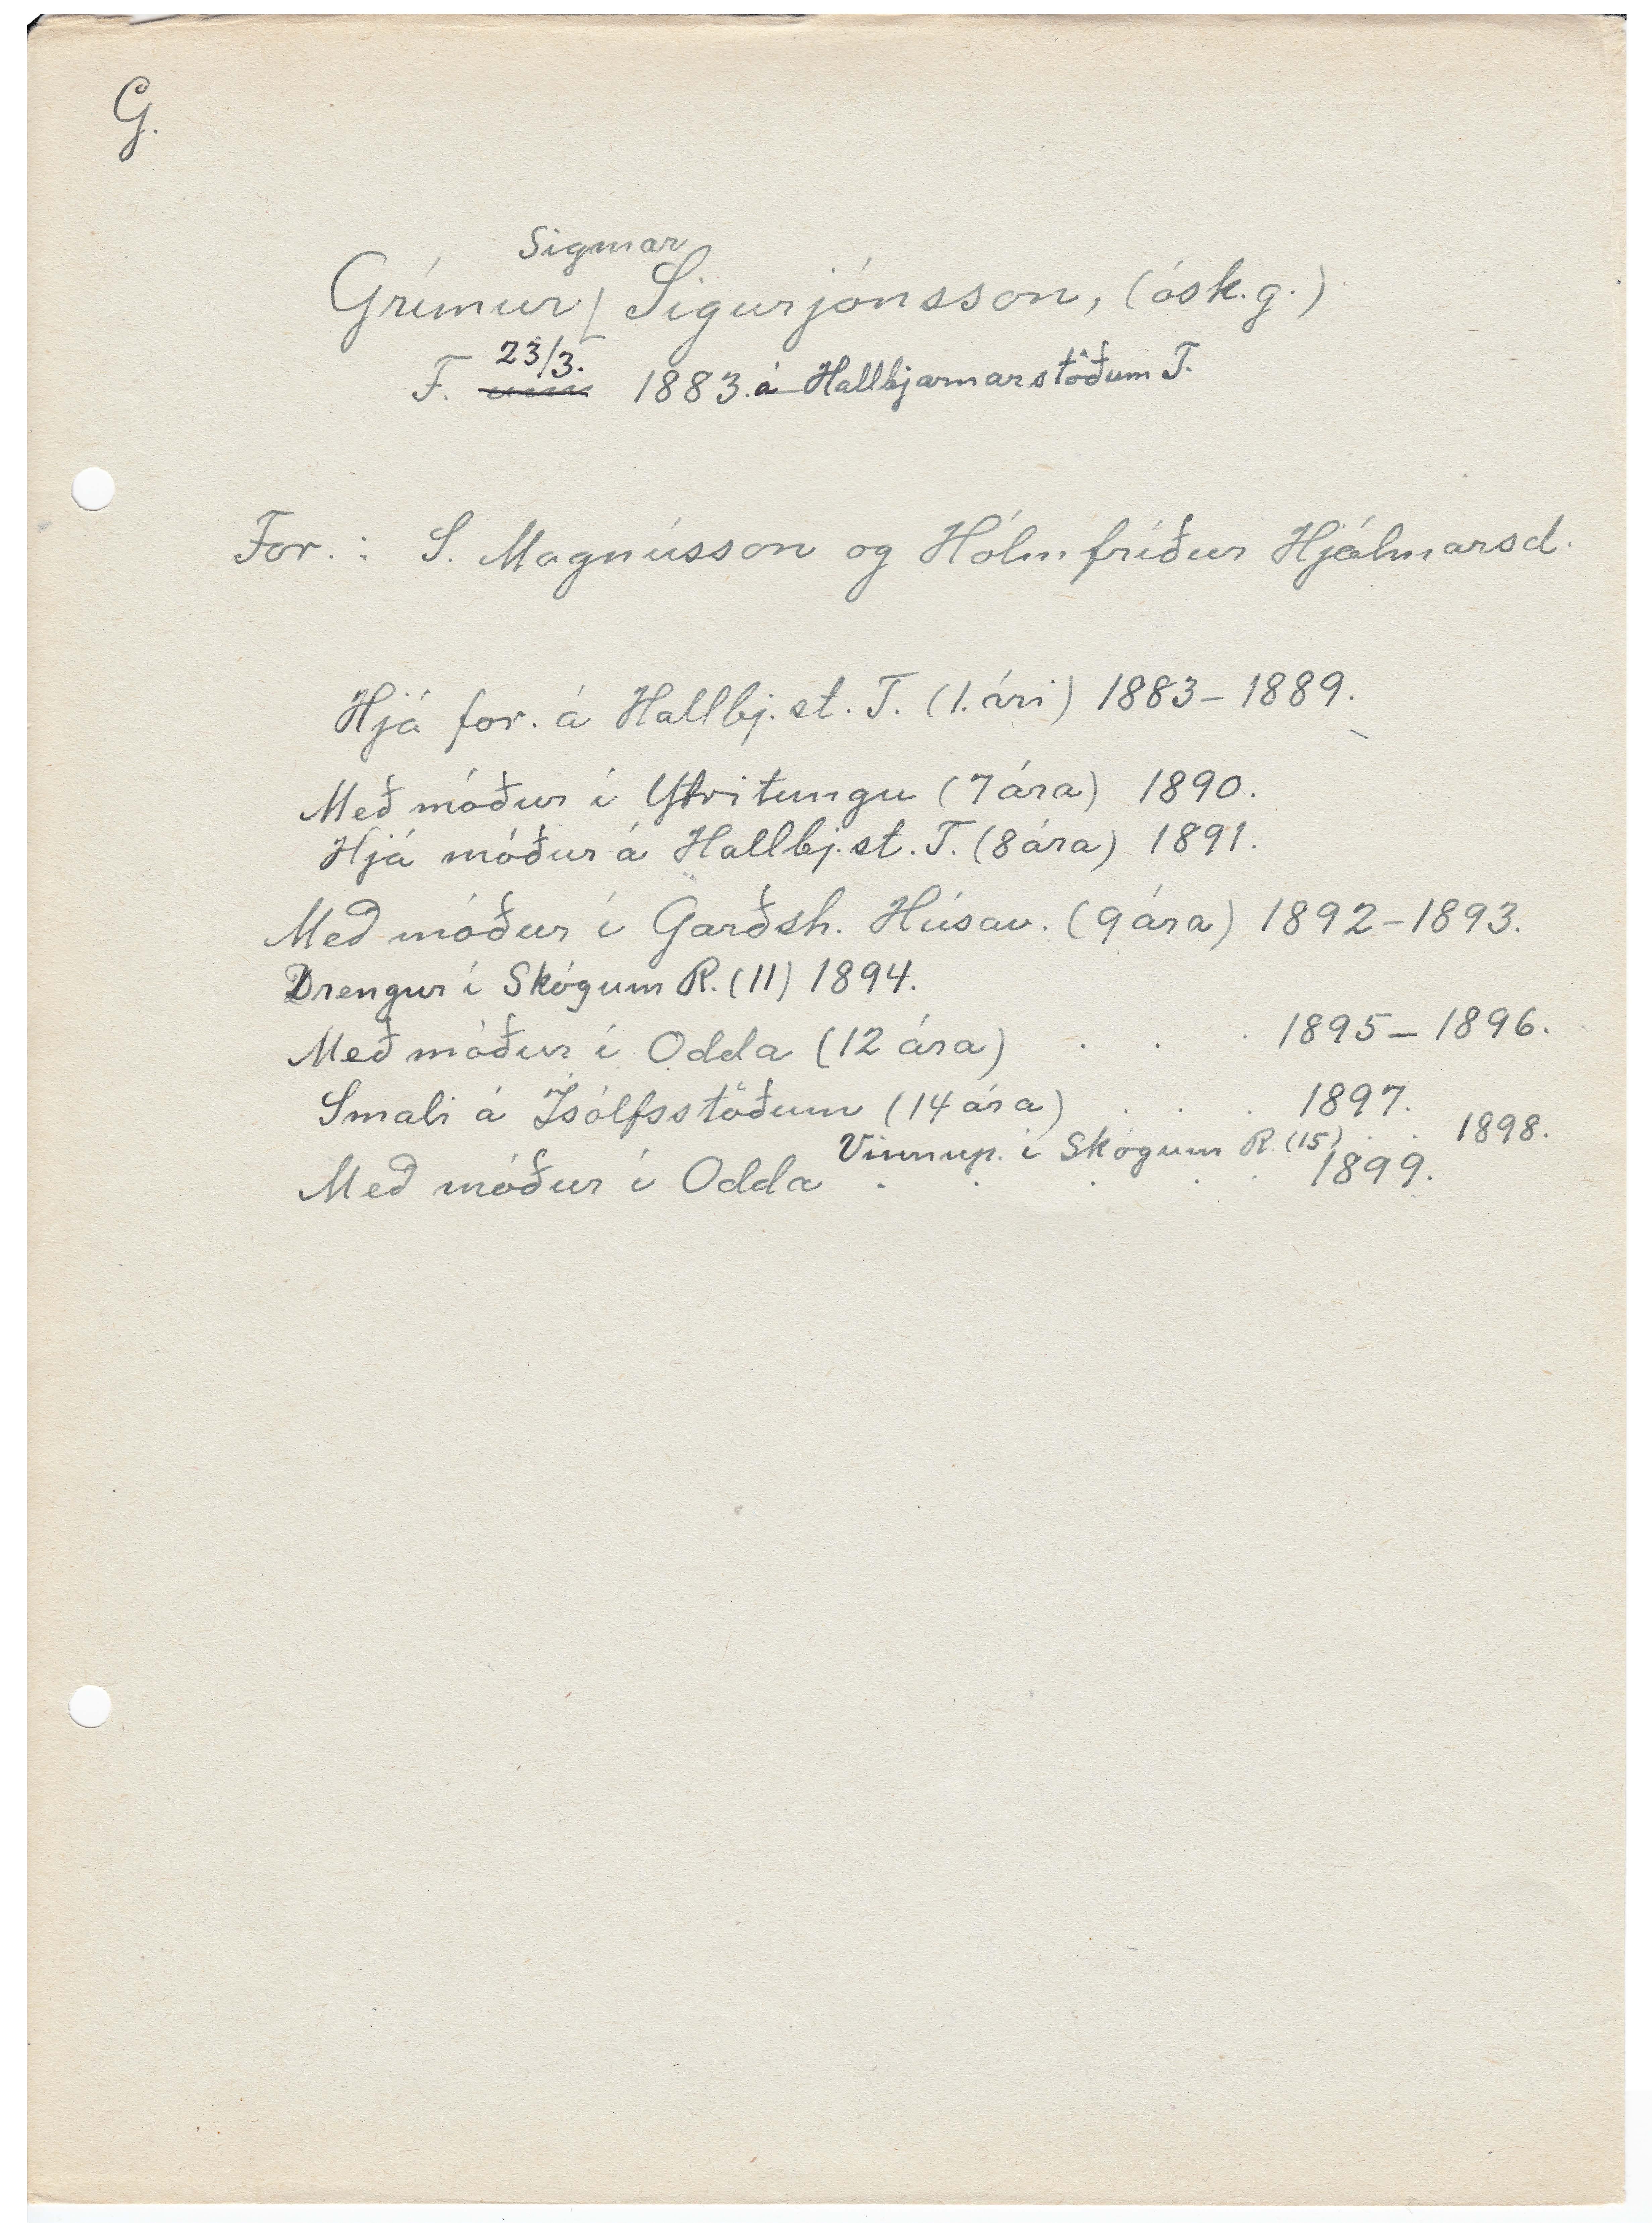 G.
Sigmar
Grímur Sigurjónsson, (ósk.g.)
23/3.
F. um 1883. á Hallbjarnarstöðum T.
For.: S. Magnússon og Hólmfríður Hjálmarsd.
Hjá for. á Hallbj.st. T. (1. ári) 1883–1889.
Með móður í Ytritungu (7 ára) 1890.
Hjá móður á Hallbj.st. T. (8 ára) 1891.
Með móður í Garðsh. Húsav. (9 ára) 1892–1893.
Drengur í Skógum R. (11) 1894.
Með móður í Odda (12 ára) . . . 1895–1896.
Smali á Ísólfsstöðum (14 ára) . . . 1897.
Vinnup. í Skógum R. (15) . . 1898.
Með móður í Odda . . . . . 1899.